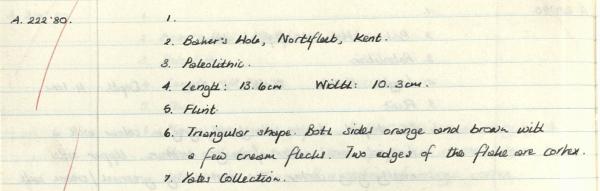 A. 222'80.
1.
2. Baker's Hole, Northfleet, Kent.
3. Paleolithic.
4. Length: 13.6cm Width: 10.3cm.
5. Flint.
6. Triangular shape. Both sides orange and brown with
a few cream flecks. Two edges of the flake are cortex.
7. Yates Collection.